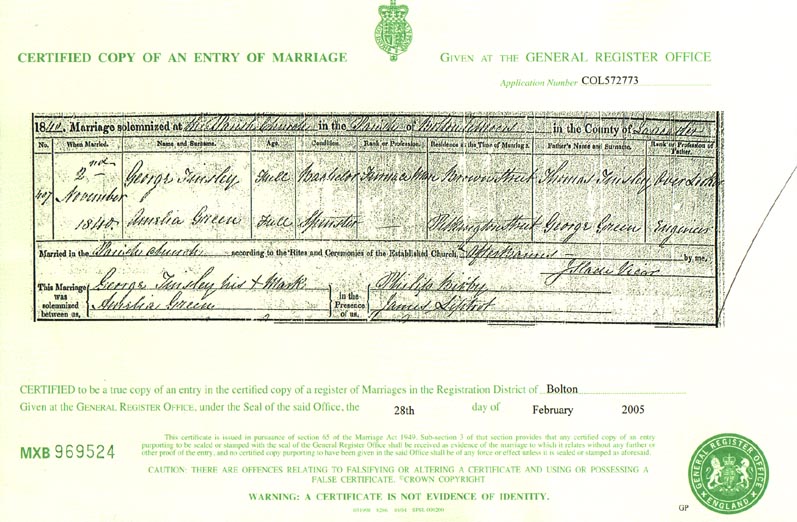 CERTIFIED COPY OF AN ENTRY OF MARRIAGE
GIVEN AT THE GENERAL REGISTER OFFICE
Application Number COL572773
1840. Marriage solemnized at the Parish Church in the Parish of Bolton le Moors in the County of Lancaster
No. When Married. Name and Surname. Age. Condition. Rank or Profession. Residence at the Time of Marriage. Father's Name and Surname. Rank or Profession of Father.
407 2nd November 1840. George Tinsley Full Bachelor Furnace Man Brown Street Thomas Tinsley Over Looker
Amelia Green Full Spinster — Street George Green Engineer
Married in the Parish Church according to the Rites and Ceremonies of the Established Church, after Banns by me,
J Slade Vicar
This Marriage was solemnized between us,
George Tinsley his X Mark
Amelia Green
in the Presence of us,
James
CERTIFIED to be a true copy of an entry in the certified copy of a register of Marriages in the Registration District of Bolton
Given at the GENERAL REGISTER OFFICE, under the Seal of the said Office, the 28th day of February 2005
MXB 969524
This certificate is issued in pursuance of section 65 of the Marriage Act 1949. Sub-section 3 of that section provides that any certified copy of an entry
purporting to be sealed or stamped with the seal of the General Register Office shall be received as evidence of the marriage to which it relates without any further or
other proof of the entry, and no certified copy purporting to have been given in the said Office shall be of any force or effect unless it is sealed or stamped as aforesaid.
CAUTION: THERE ARE OFFENCES RELATING TO FALSIFYING OR ALTERING A CERTIFICATE AND USING OR POSSESSING A
FALSE CERTIFICATE. ©CROWN COPYRIGHT
WARNING: A CERTIFICATE IS NOT EVIDENCE OF IDENTITY.
GENERAL REGISTER OFFICE
ENGLAND
GP